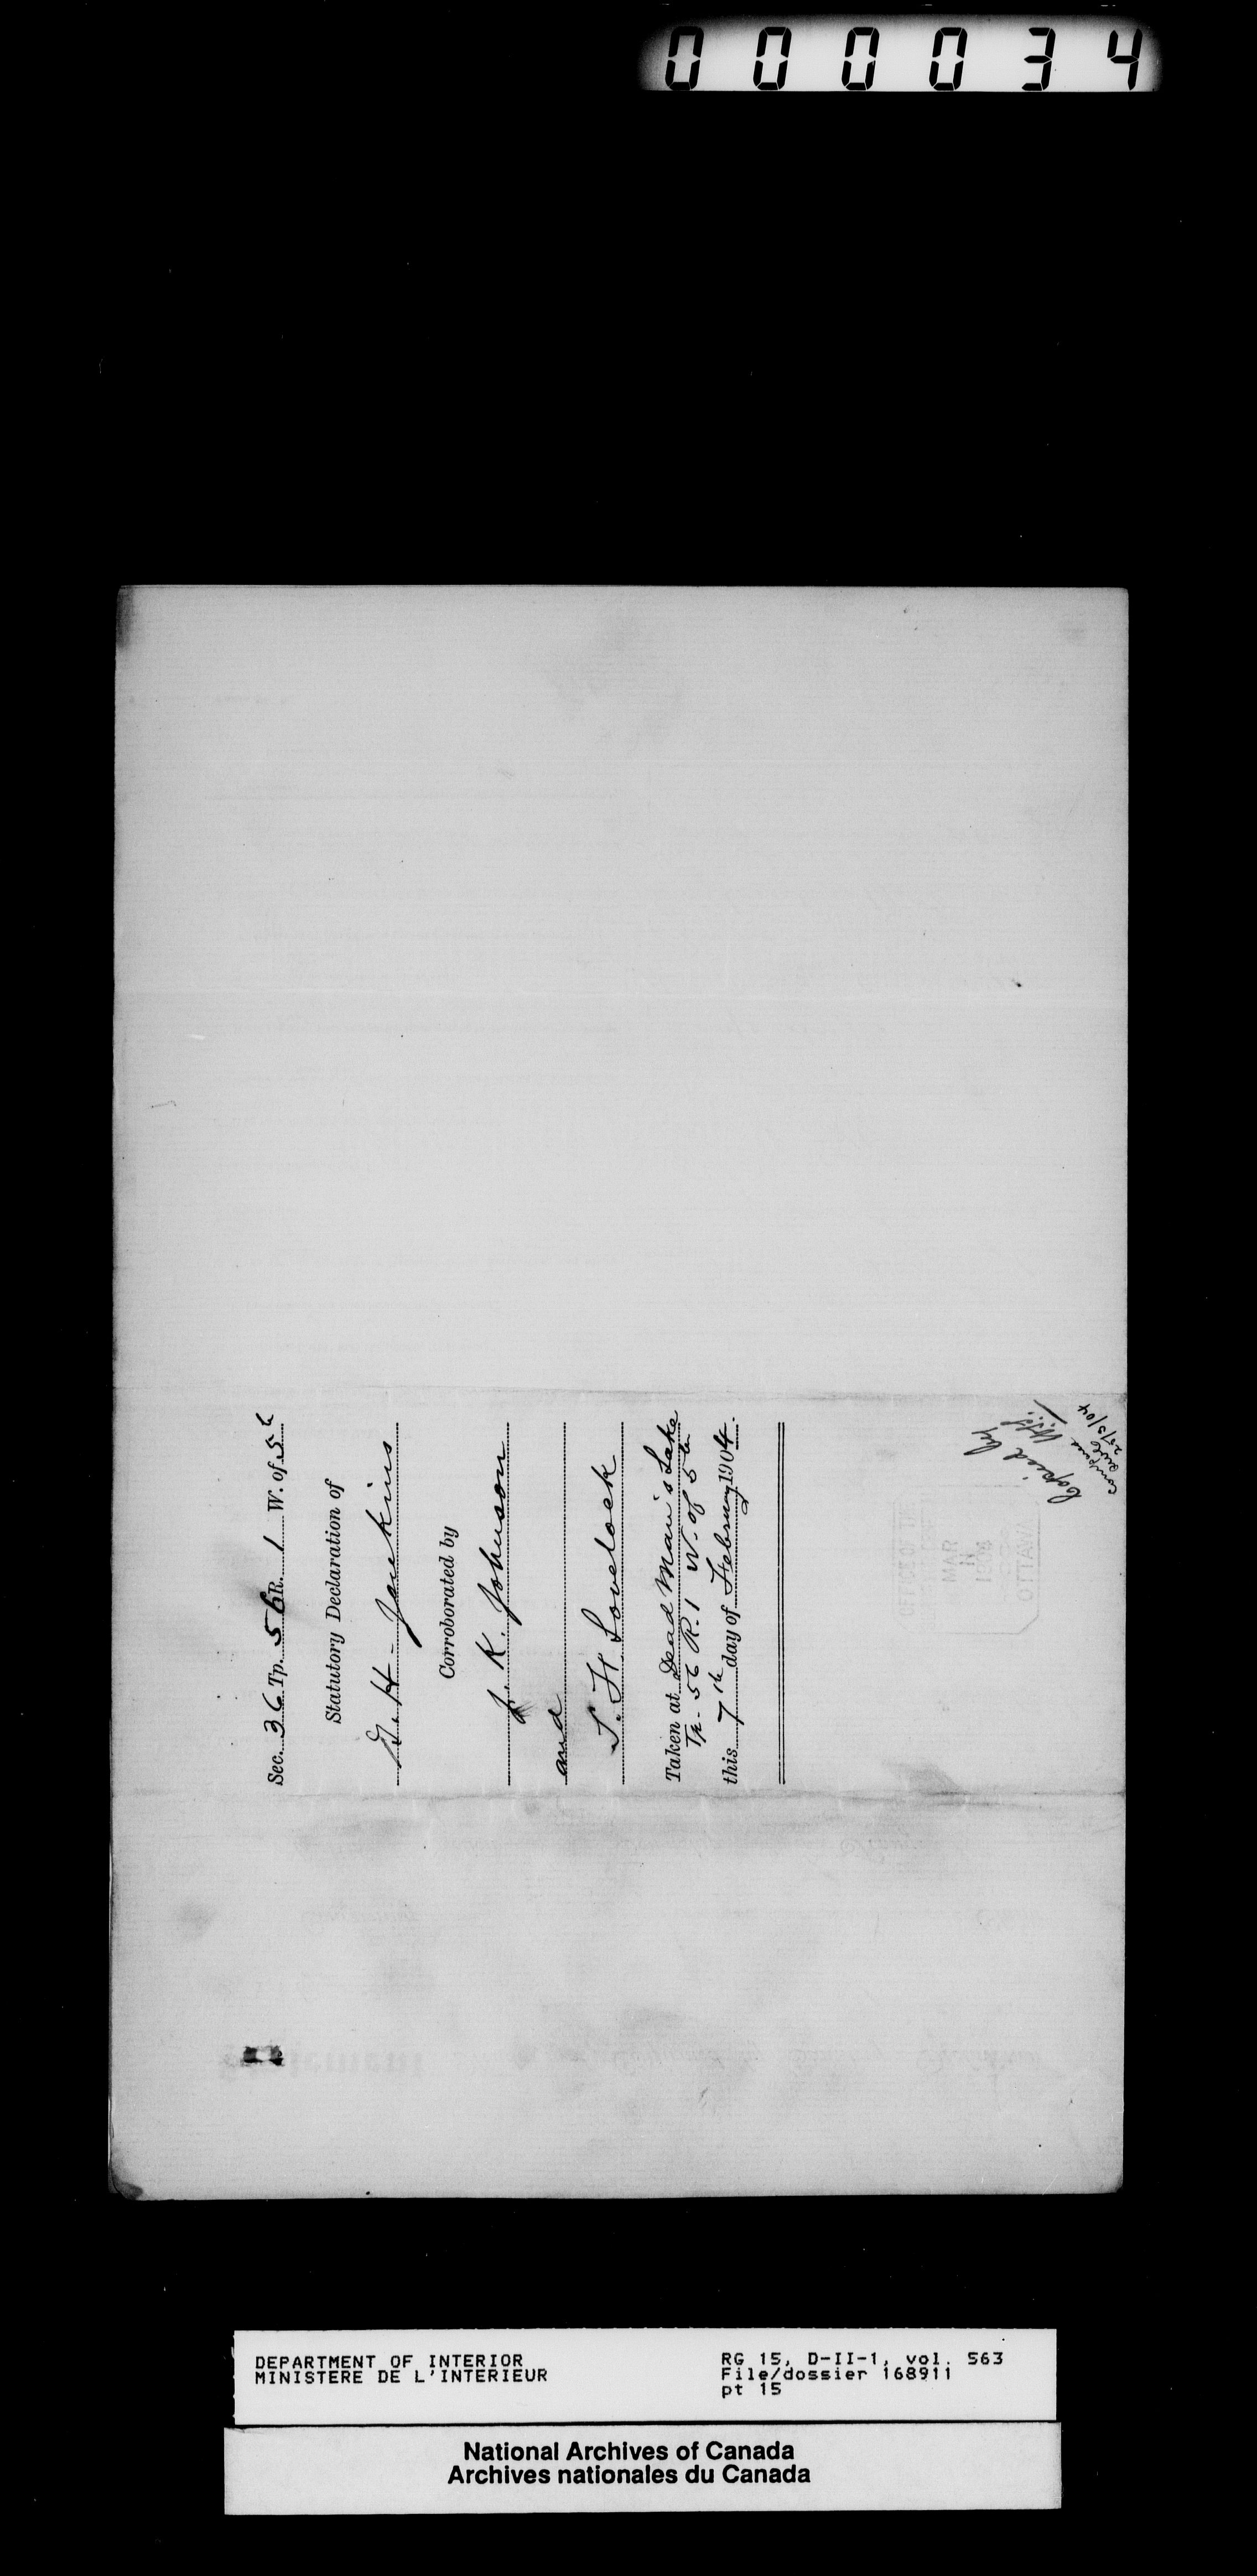 000034
Sec. 36 Tp. 56 R. 1 W. of 5th
Statutory Declaration of
G. H. Jenkins
Corroborated by
J. K. Johnson
and
S. H. Lovelock
Taken at Dead Man's Lake
Tp - 56 R. 1 W. of 5th
this 7th day of February 1904.
Copied by
Compared
29/3/04
OFFICE OF THE
MAR
OTTAWA
DEPARTMENT OF INTERIOR
MINISTERE DE L'INTERIEUR
RG 15, D-II-1, vol. 563
File/dossier 168911
pt 15
National Archives of Canada
Archives nationales du Canada